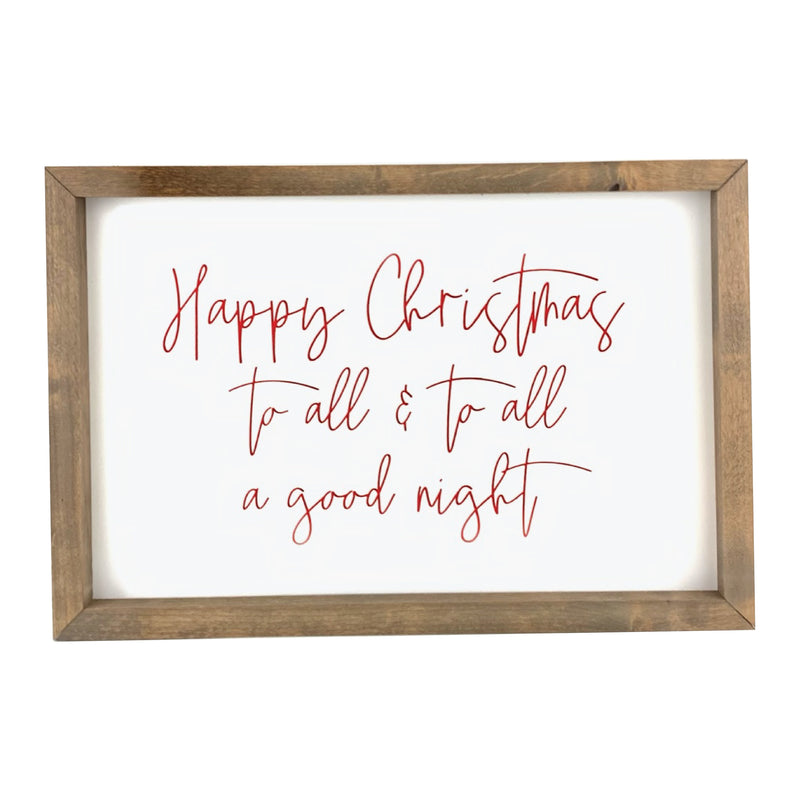 Happy Christmas
to all & to all
a good night